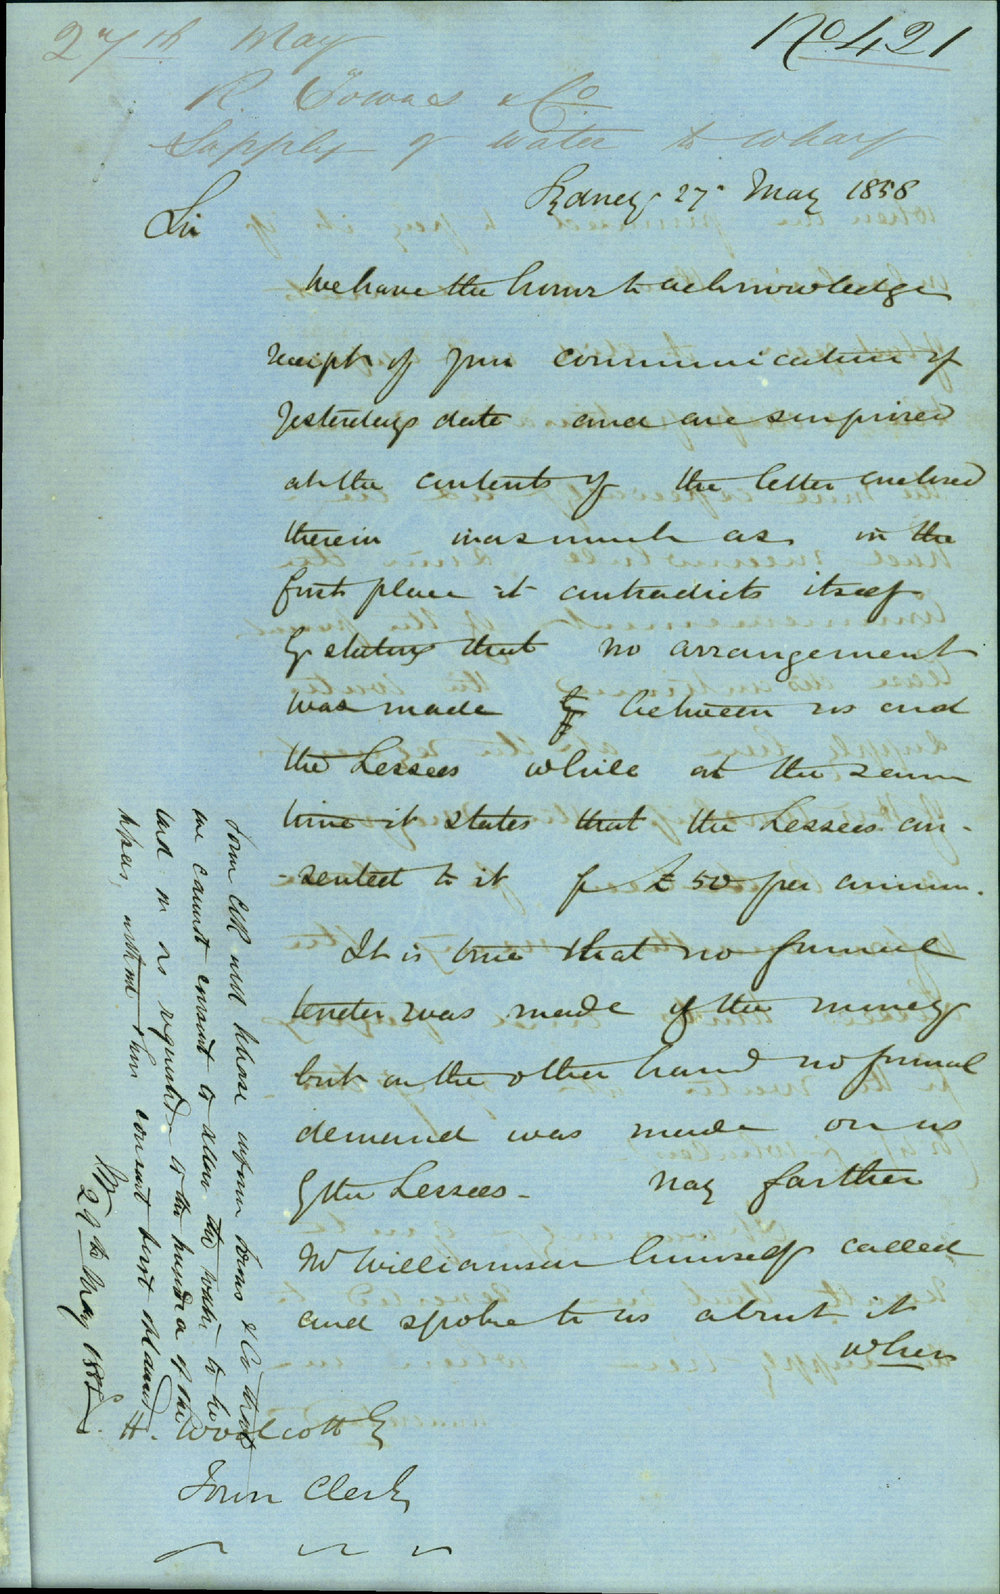 27th May
No 421
R. Towns & Co
Supply of water to wharf
Sydney 27 May 1858
Sir
We have the honor to acknowledge
receipt of your communication of
Yesterdays date and are surprised
at the contents of the letter enclosed
therein inasmuch as in the
first place it contradicts itself
by stating that no arrangement
was made by between us and
the Lessees while at the same
time it states that the Lessees con-
-sented to it for £50 per annum.
It is true that no formal
tender was made of the money
but on the other hand no formal
demand was made on us
by the Lessees - Nay farther
Mr Williamson himself called
and spoke to us about it
when
H. Woolcott Esq
Town Clerk
Town Clk will please inform Towns & Co that
we cannot consent to allow the water to be
laid on as requested to the of the
lessees, without their consent first obtained
27th May 1858